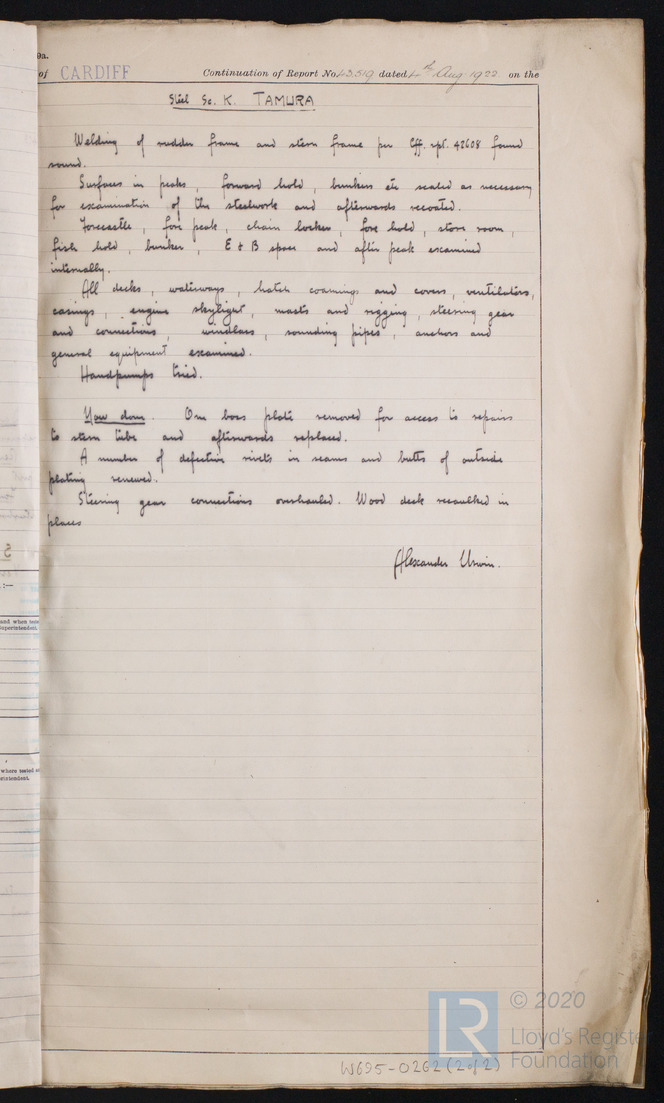 9a.
of CARDIFF Continuation of Report No. 43,519 dated 4th Aug 1922. on the
Steel Sc. K. TAMURA
Welding of rudder frame and stern frame per Cff. rpt. 42608 found
sound.
Surfaces in peaks, forward hold, bunkers etc scaled as necessary
for examination of the steelwork and afterwards recoated.
Forecastle, fore peak, chain locker, fore hold, store room,
fish hold, bunker, E & B space and after peak examined
internally.
All decks, waterways, hatch coamings and covers, ventilators,
casings, engine skylight, masts and rigging, steering gear
and connections, windlass, sounding pipes, anchors and
general equipment examined.
Handpumps tried.
Now done. One boss plate removed for access to repairs
to stern tube and afterwards replaced.
A number of defective rivets in seams and butts of outside
plating renewed.
Steering gear connections overhauled. Wood deck recaulked in
places
Alexander Urwin.
and when
Superintendent
where noted
© 2020
Lloyd's Register
Foundation
LR
W695-0262 (2 of 2)